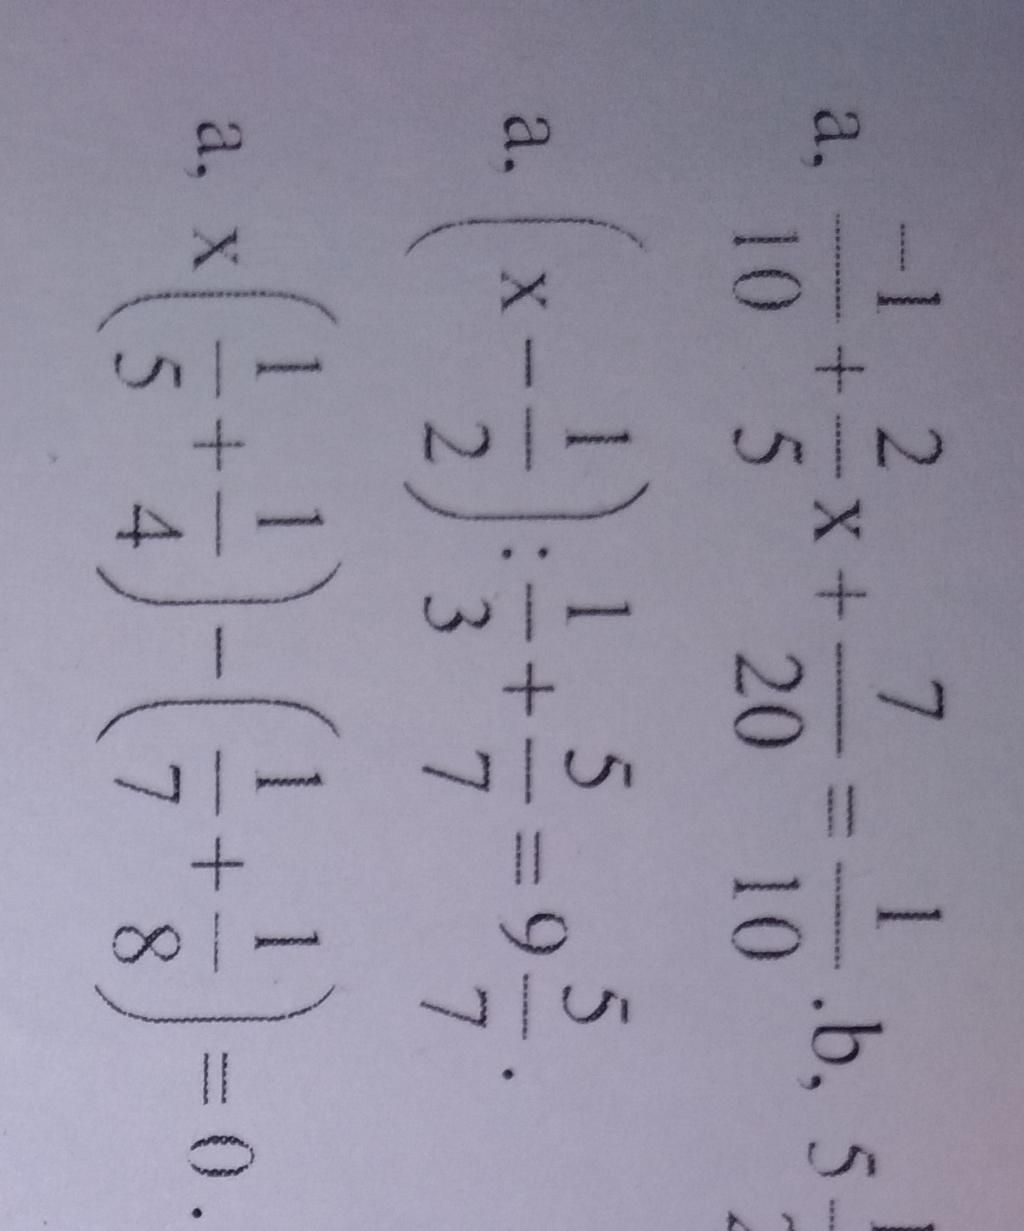 a, -1/10 + 2/5 x + 7/20 = 1/10 . b, 5
a, (x - 1/2) : 1/3 + 5/7 = 9 5/7 .
a, x(1/5 + 1/4) - (1/7 + 1/8) = 0 .